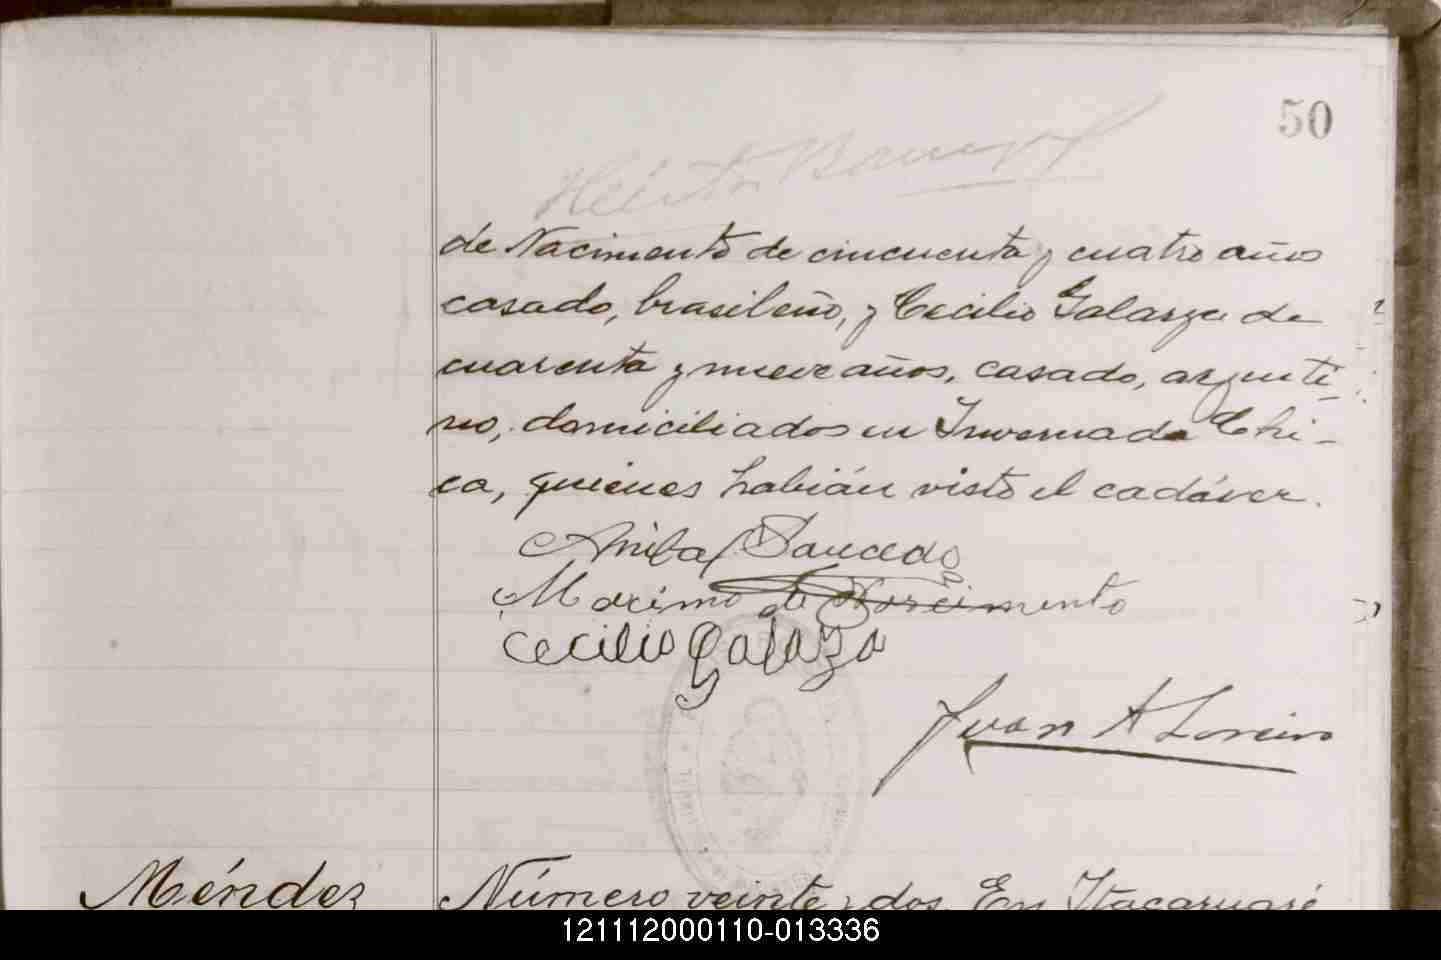 50
Héctor
de Nacimento de cincuenta y cuatro años
casado, brasileño, y Cecilio Galarza de
cuarenta y nueve años, casado, argenti
no, domiciliados en Invernada Chi-
ca, quienes habián visto el cadáver.
Anibal Saucedo
Maximo de Nascimento
Cecilio Galaza
Juan A Loreiro
Méndez
Número veinte y dos. En Itacaruaré
121112000110-013336